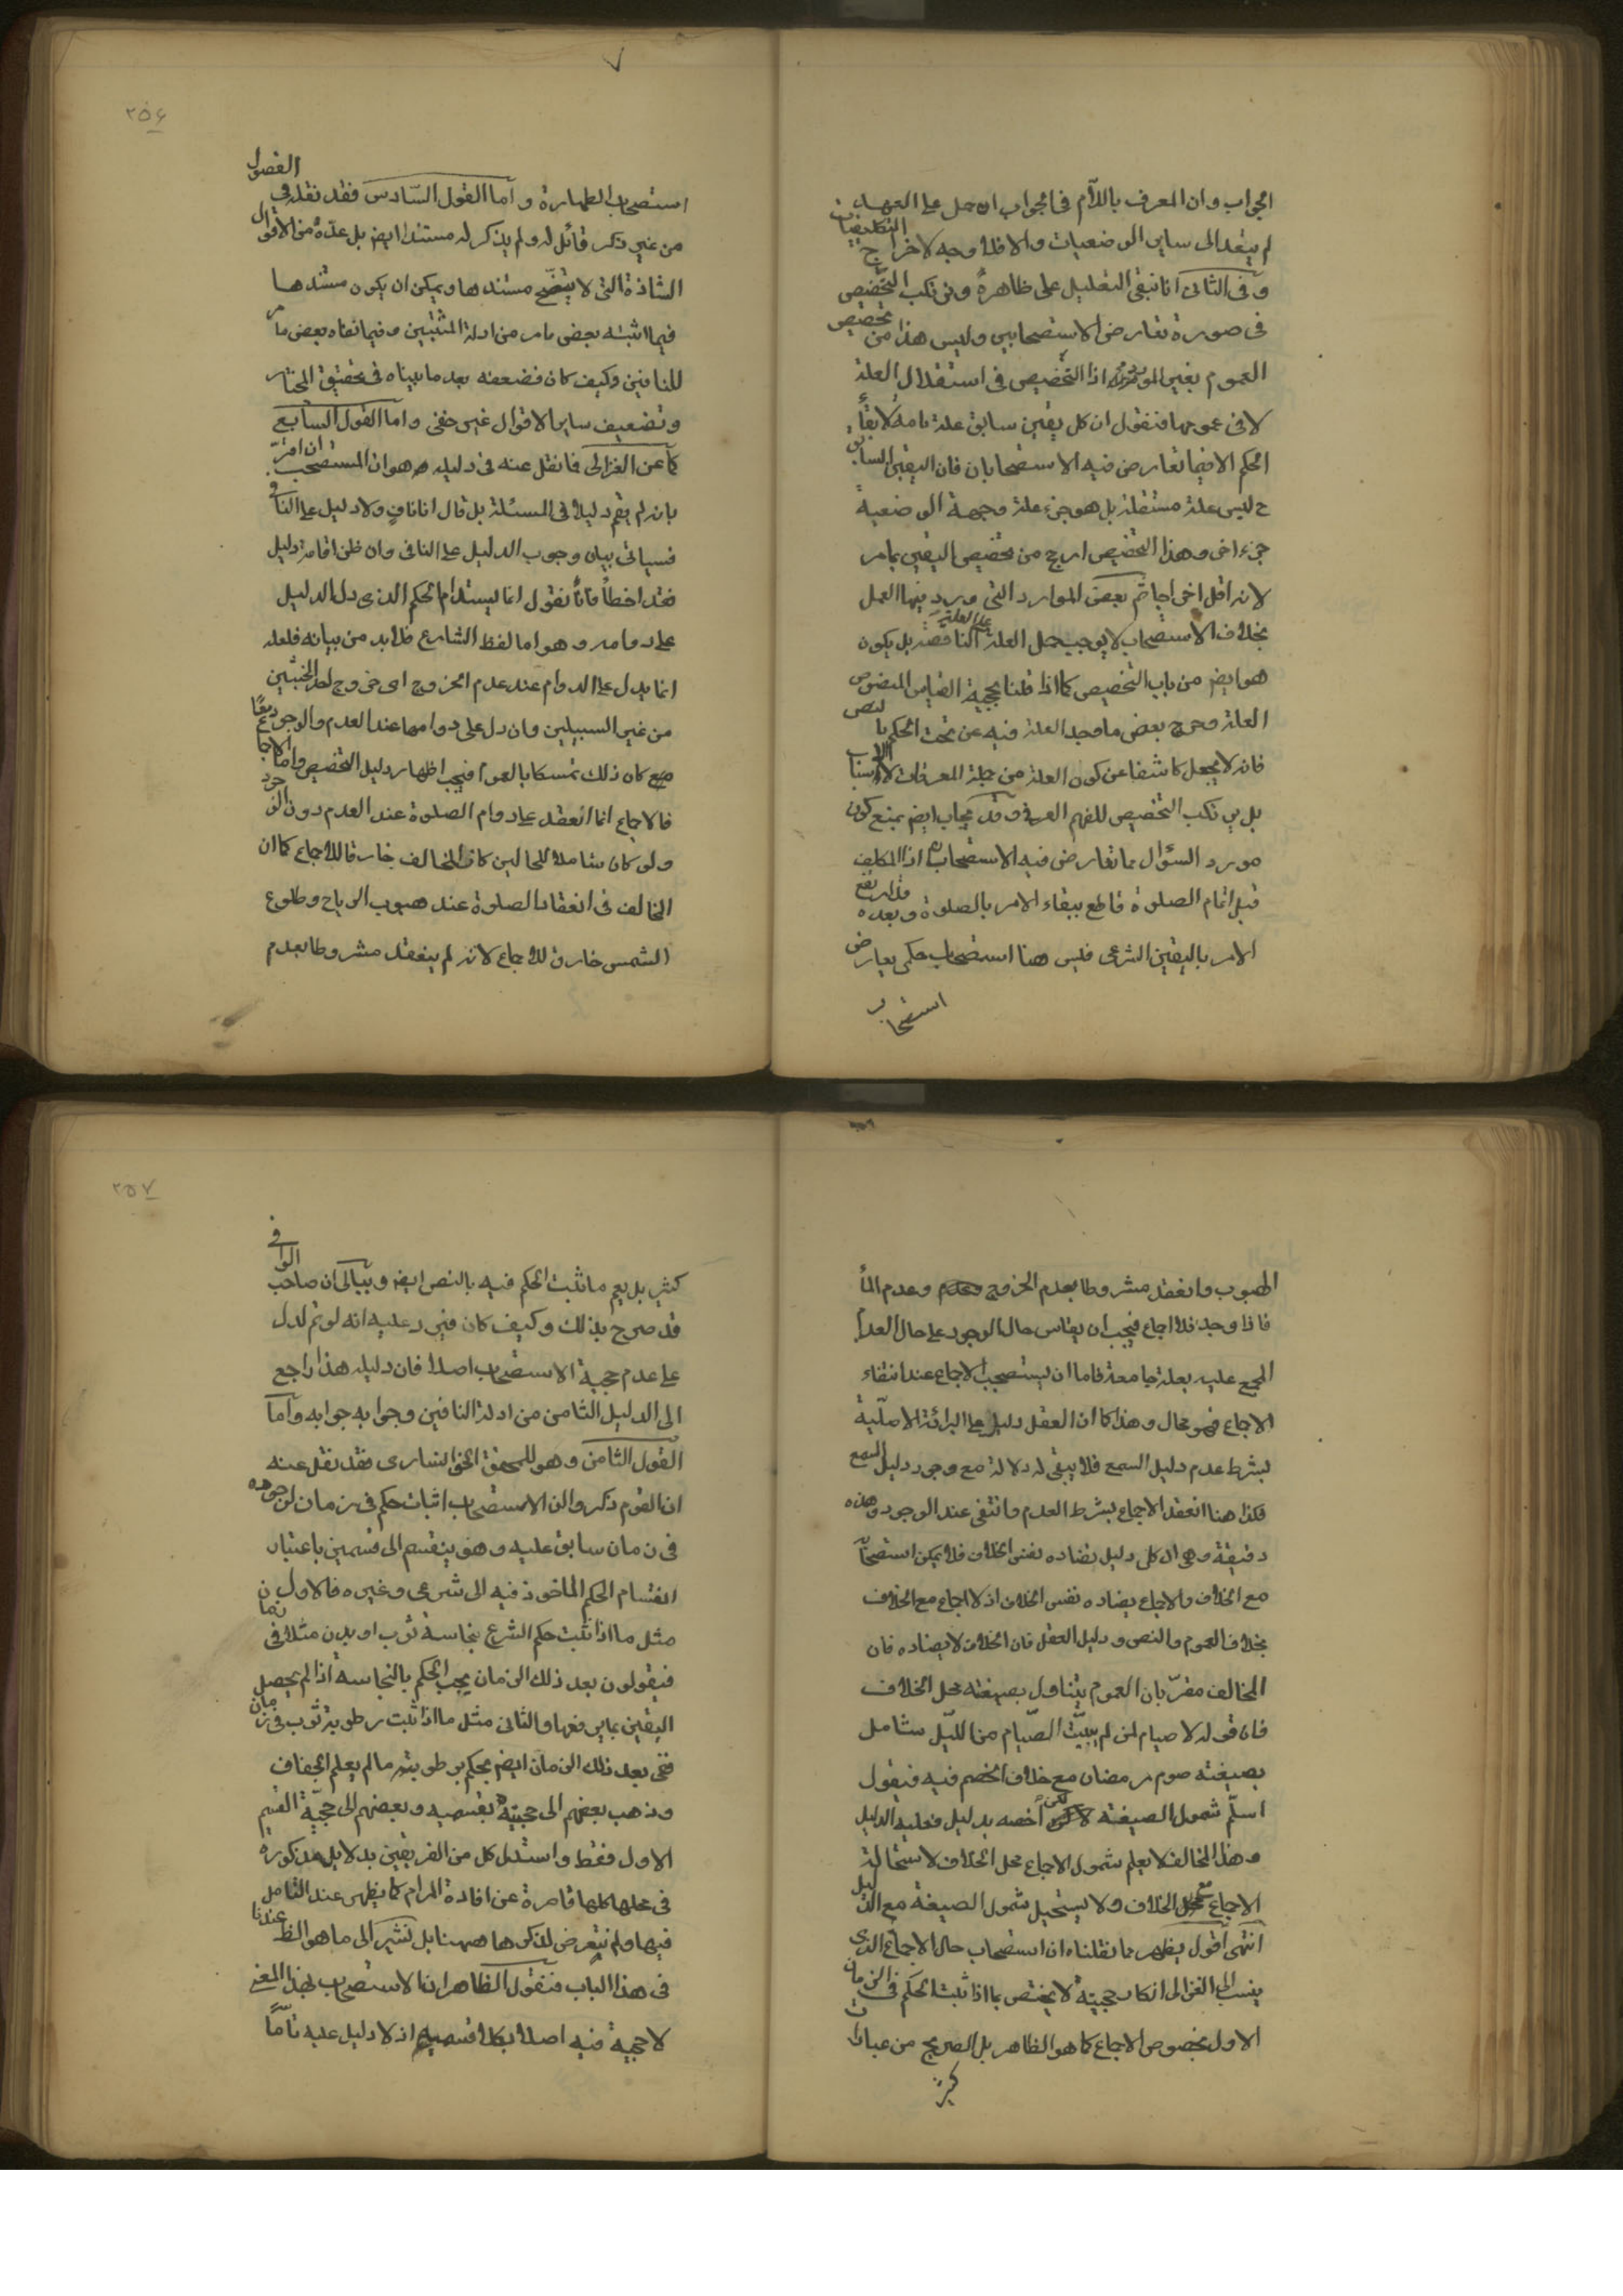 الجواب وان المعرف باللّام فى الجواب ان حمل على العهد
لم يتعد الى ساير الوضعيات والا فلا وجه لاخراج التكليفيات
وفى الثانى انا نبقى التعليل على ظاهره ونرتكب التخصيص
فى صورة تعارض الاستصحابين وليس هذا من تخصيص
العموم بغير المورد اذا التخصيص فى استقلال العلة
لا فى عمومها فنقول ان كل يقين سابق علة تامة لابقاء
الحكم الا فيما تعارض فيه الاستصحابان فان اليقين السابق
ح ليس علة مستقلة بل هو جزء علة وجهة الوضعية
جزء اخر وهذا التخصيص ارجح من تخصيص اليقين بامر
لانه اقل اخراجا ثم بعض الموارد التى ورد فيها العمل
بخلاف الاستصحاب لا يوجب حمل العلة على العلة الناقصة بل يكون
هو ايضر من باب التخصيص كما اذا قلنا بحجية القياس المنصوص
العلة وخرج بعض ما وجد العلة فيه عن تحت الحكم بالنص
فانه لا يجعل كاشفا عن كون العلة من جملة المعرفات لا الاسباب
بل يرتكب التخصيص للفهم العرفى وقد يجاب ايضر بمنع كون
مورد السؤال مما تعارض فيه الاستصحابان اذا المكلف
قبل اتمام الصلوة قاطع ببقاء الامر بالصلوة وبعده قد ارتفع
الامر باليقين الشرعى فليس هنا استصحاب حكمى يعارض
استصحاب
٢٥٦
استصحاب الطهارة واما القول السّادس فقد نقله فى الفصول
من غير ذكر قائل له ولم يذكر له مستندا ايضر بل عدّه من الاقوال
الشاذة التى لا يتضّح مستندها ويمكن ان يكون مستندها
فيما اثبته بعض ما مر من ادلة المثبتين وفيما نفاه بعض ما مر
للنافين وكيف كان فضعفه بعد ما بيناه فى تحقيق المختار
وتضعيف ساير الاقوال غير خفى واما القول السابع
كما عن الغزالى فانقل عنه فى دليله هو ان المستصحب ان اقرّ
بانه لم يقم دليلا فى المسئلة بل قال انا ناف ولا دليل على النافى
فسياتى بيان وجوب الدليل على النافى وان ظن اقامة دليل
فقد اخطأ فانّا نقول انما يستدام الحكم الذى دل الدليل
على دوامه وهو اما لفظ الشارع فلابد من بيانه فلعله
انما يدل على الدوام عند عدم الخروج اى خروج احد الخبثين
من غير السبيلين وان دل على دوامها عند العدم والوجود معًا
كان ذلك تمسكا بالعموم فيجب اظهار دليل التخصيص واما الاجماع
فالاجماع انما انعقد على دوام الصلوة عند العدم دون الوجود
ولو كان شاملا للحالين كان المخالف خارقا للاجماع كما ان
المخالف فى انعقاد الصلوة عند هبوب الرياح وطلوع
الشمس خارق للاجماع لانه لم ينعقد مشروطا بعدم
الهبوب وانعقد مشروطا بعدم الخروج وعدم الماء
فاذا وجد فلا اجماع فيجب ان يقاس حال الوجود على حال العدم
المجمع عليه بعلة جامعة فاما ان يستصحب الاجماع عند انتفاء
الاجماع فهو محال وهذا كما ان العقل دليل على البرائة الاصلّية
بشرط عدم دليل السمع فلا يبقى له دلالة مع وجود دليل السمع
فكذا هنا انعقد الاجماع بشرط العدم وانتفى عند الوجود وهذه
دقيقة وهى ان كل دليل يضاده نفس الخلاف فلا يمكن استصحابه
مع الخلاف والاجماع يضاده نفس الخلاف اذ لا اجماع مع الخلاف
بخلاف العموم والنص ودليل العقل فان الخلاف لا يضاده فان
المخالف مقرّ بان العموم يتناول بصيغته محل الخلاف
فان قوله لا صيام لمن لم يبيّت الصّيام من اللّيل شامل
بصيغته صوم رمضان مع خلاف الخصم فيه فيقول
اسلّم شمول الصيغة لكن اخصه بدليل فعليه الدليل
وهذا المخالف لا يعلم شمول الاجماع محل الخلاف لاستحالة
الاجماع مع الخلاف ولا يستحيل شمول الصيغة مع الدليل
انتهى اقول يظهر مما نقلناه ان استصحاب حال الاجماع الذى
ينسب الى الغزالى انكار حجيته لا يختص بما اذا ثبت الحكم فى الزمان
الاول بخصوص الاجماع كما هو الظاهر بل الصريح من عبارات
كثير
٢٥٧
كثير بل يعم ما ثبت الحكم فيه بالنص ايضر وببالى ان صاحب الوافى
قد صرح بذلك وكيف كان فيرد عليه انه لو تم لدل
على عدم حجية الاستصحاب اصلا فان دليله هذا راجع
الى الدليل الثامن من ادلة النافين وجوابه جوابه واما
القول الثامن وهو للمحقق الخوانسارى فقد نقل عنه
ان القوم ذكروا ان الاستصحاب اثبات حكم فى زمان لوجوده
فى زمان سابق عليه وهو ينقسم الى قسمين باعتبار
انقسام الحكم الماخوذ فيه الى شرعى وغيره فالاول
مثل ما اذا ثبت حكم الشرع بنجاسة ثوب او بدن مثلا فى زمان
فيقولون بعد ذلك الزمان يجب الحكم بالنجاسة اذا لم يحصل
اليقين بما يرفعها والثانى مثل ما اذا ثبت رطوبة ثوب فى زمان
ففى بعد ذلك الزمان ايضر يحكم برطوبته ما لم يعلم الجفاف
وذهب بعضهم الى حجيته بقسميه وبعضهم الى حجيّة القسم
الاول فقط واستدل كل من الفريقين بدلايل مذكورة
فى محلها كلها قاصرة عن افادة المرام كما يظهر عند التامل
فيها ولم نتعرض لذكرها ههنا بل نشير الى ما هو الظاهر عندنا
فى هذا الباب فنقول الظاهر ان الاستصحاب بهذا المعنى
لا حجية فيه اصلا بكلا قسميه اذ لا دليل عليه تامّاً